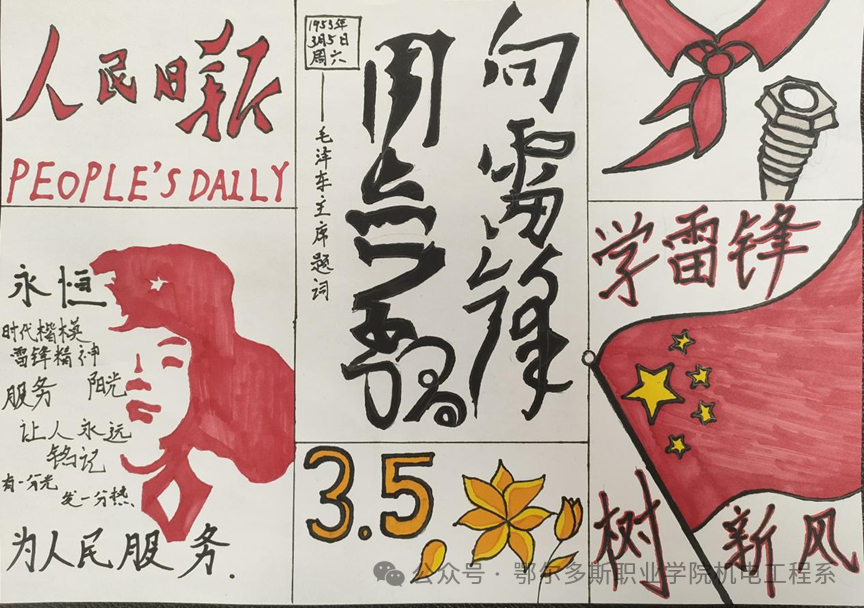 人民日报
PEOPLE'S DAILY
永恒
时代楷模
雷锋精神
服务 阳光
让人永远
铭记
有一分光
发一分热
为人民服务.
1953年
3月5日
周六
——毛泽东主席题词
向雷锋
同志学习
3.5
学雷锋
树新风
公众号 · 鄂尔多斯职业学院机电工程系